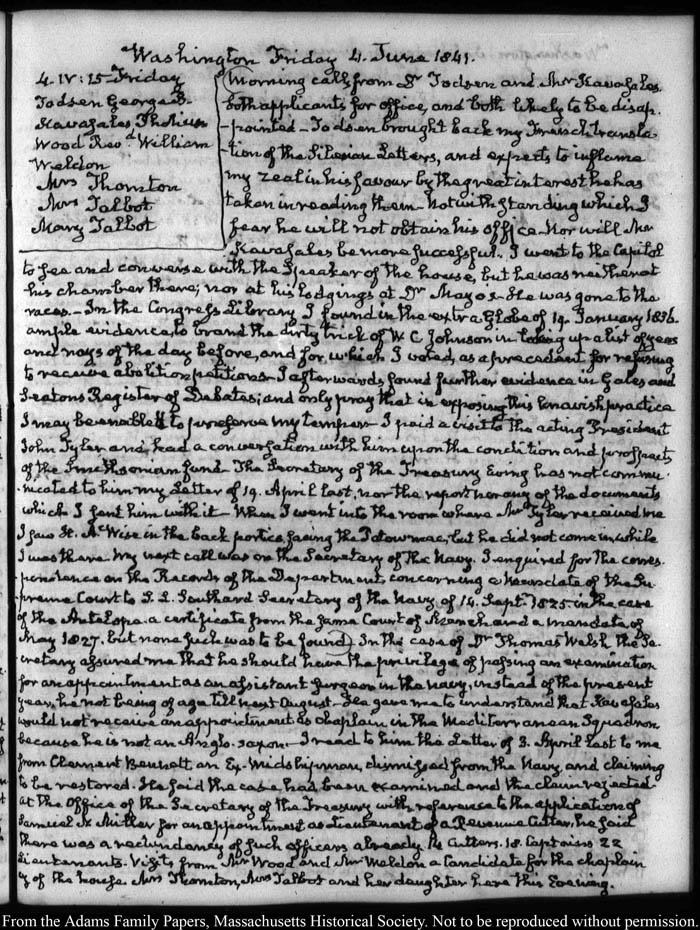 Washington Friday 4. June 1841.
4. IV:15. Friday
Todsen George P.
Kavasales Thokion
Wood Revd. William
Weldon
Mrs Thornton
Mrs Talbot
Mary Talbot
Morning calls from Dr Todsen and Mr Kavasales
both applicants for office, and both likely to be disap-
-pointed – Todsen brought back my French transla-
-tion of the Silesian Letters, and expects to inflame
my zeal in his favour by the great interest he has
taken in reading them – Notwithstanding which I
fear he will not obtain his office – Nor will Mr
Kavasales be more successful. I went to the Capitol
to see and converse with the Speaker of the house, but he was neither at
his chamber there; nor at his lodgings at Dr Mayo's – He was gone to the
races. – In the Congress Library I found in the extra Globe of 19. January 1836.
ample evidence, to brand the dirty trick of W. C. Johnson in taking up a list of yeas
and nays of the day before, and for which I voted, as a precedent for refusing
to receive abolition petitions – I afterwards found further evidence in Gales and
Seatons Register of Debates; and only pray that in exposing this knavish practice
I may be enabled to preserve my temper – I paid a visit to the acting President
John Tyler and had a conversation with him upon the condition and prospects
of the Smithsonian fund. The Secretary of the Treasury Ewing has not commu-
-nicated to him my Letter of 19. April last, nor the report nor any of the documents
which I sent him with it – When I went into the room where Mr Tyler received me
I saw H. A. Wise in the back portico facing the Potowmac, but he did not come in while
I was there. My next call was on the Secretary of the Navy. I enquired for the corres-
-pondence on the Records of the Department concerning a mandate of the Su-
-preme Court to S. L. Southard Secretary of the Navy, of 14. Septr. 1825. in the case
of the Antelope. a certificate from the same Court of March and a mandate of
May 1827. but none such was to be found. In the case of Dr Thomas Welsh the Se-
cretary assured me that he should have the privilege of passing an examination
for an appointment as an assistant Surgeon in the navy, instead of the present
year, he not being of age till next August. He gave me to understand that Kavasales
would not receive an appointment as Chaplain in the Mediterranean Squadron
because he is not an Anglo-saxon. – I read to him the Letter of 3. April last to me
from Clement Bennett, an Ex-Midshipman, dismissed from the Navy and claiming
to be restored. He said the case had been examined and the claim rejected.
At the Office of the Secretary of the Treasury with reference to the application of
Samuel Miller for an appointment as Lieutenant of a Revenue Cutter, he said
there was a redundancy of such officers already 14 Cutters. 18. Captains 22
Lieutenants. Visits from Mr Wood and Mr Weldon a Candidate for the chaplain
cy of the house. Mrs Thornton, Mrs Talbot and her daughter here this Evening.
From the Adams Family Papers, Massachusetts Historical Society. Not to be reproduced without permission.